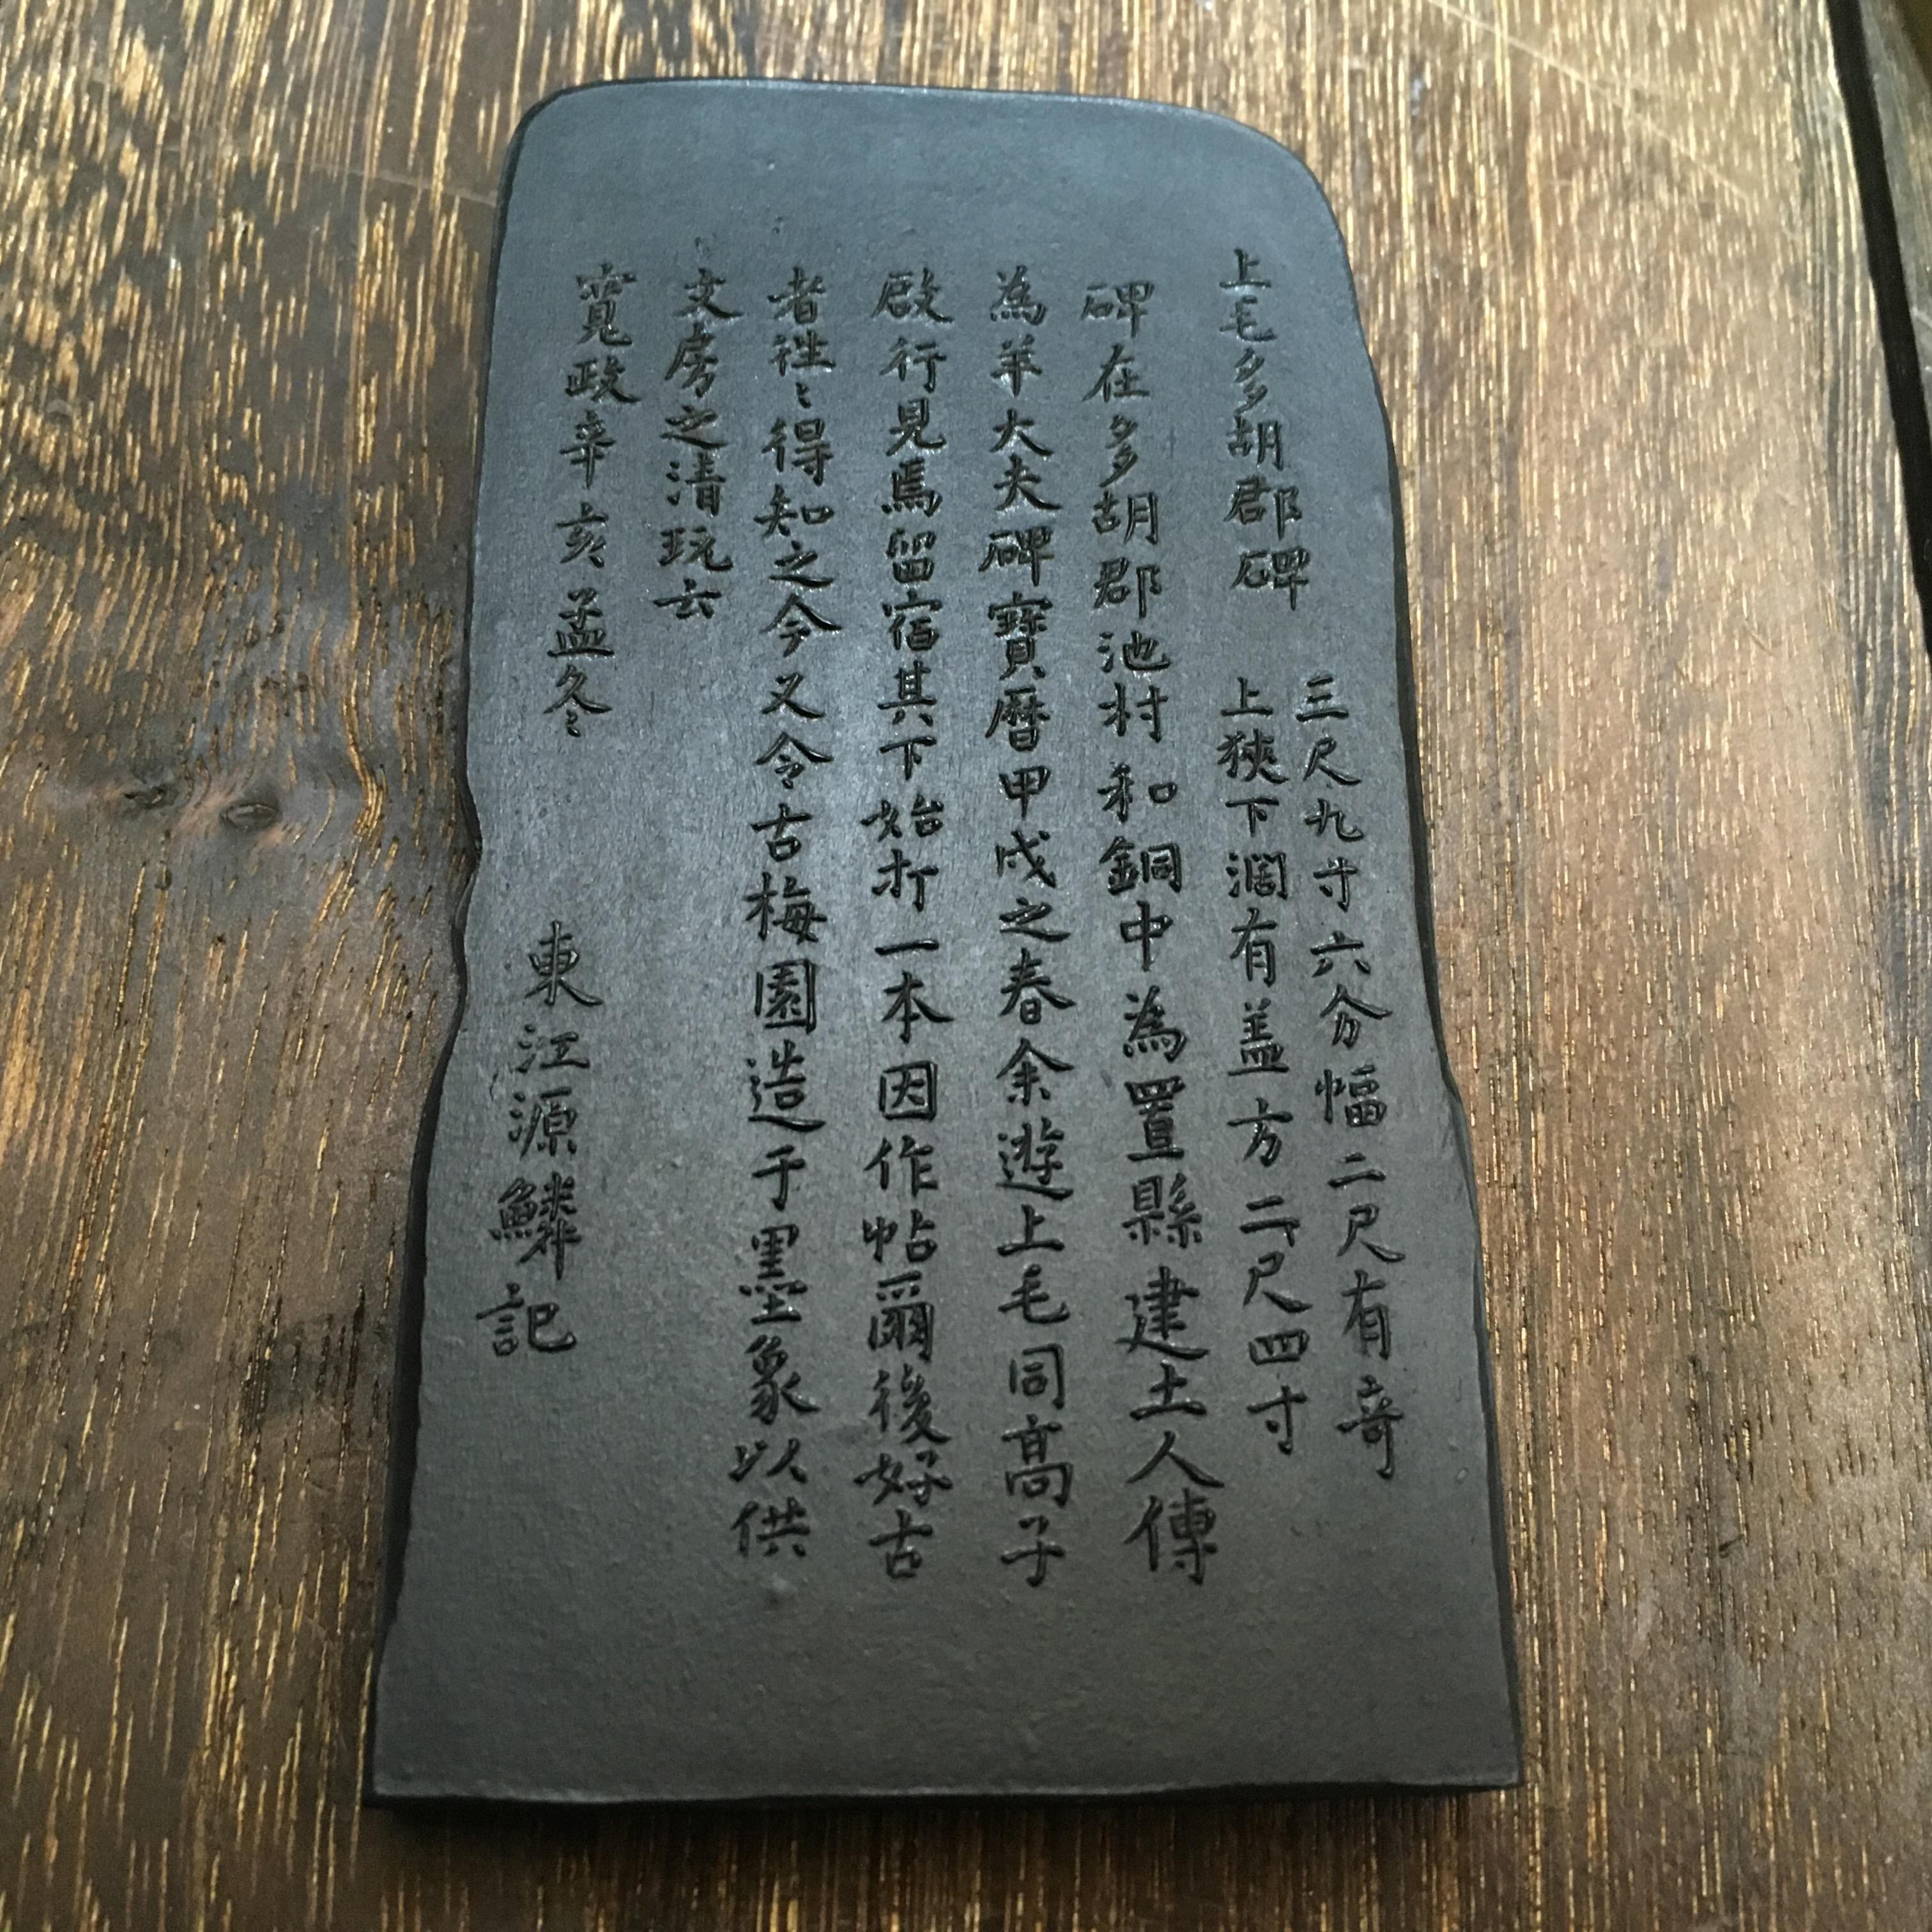 上毛多胡郡碑
三尺九寸六分幅二尺有竒
上狹下濶有盖方二尺四寸
碑在多胡郡池村和銅中為置縣建土人傳
為羊大夫碑寶曆甲戌之春余遊上毛同髙子
啟行見焉留宿其下始打一本因作帖爾後好古
者徃〻得知之今又令古梅園造于墨象以供
文房之清玩云
寛政辛亥孟冬
東江源鱗記